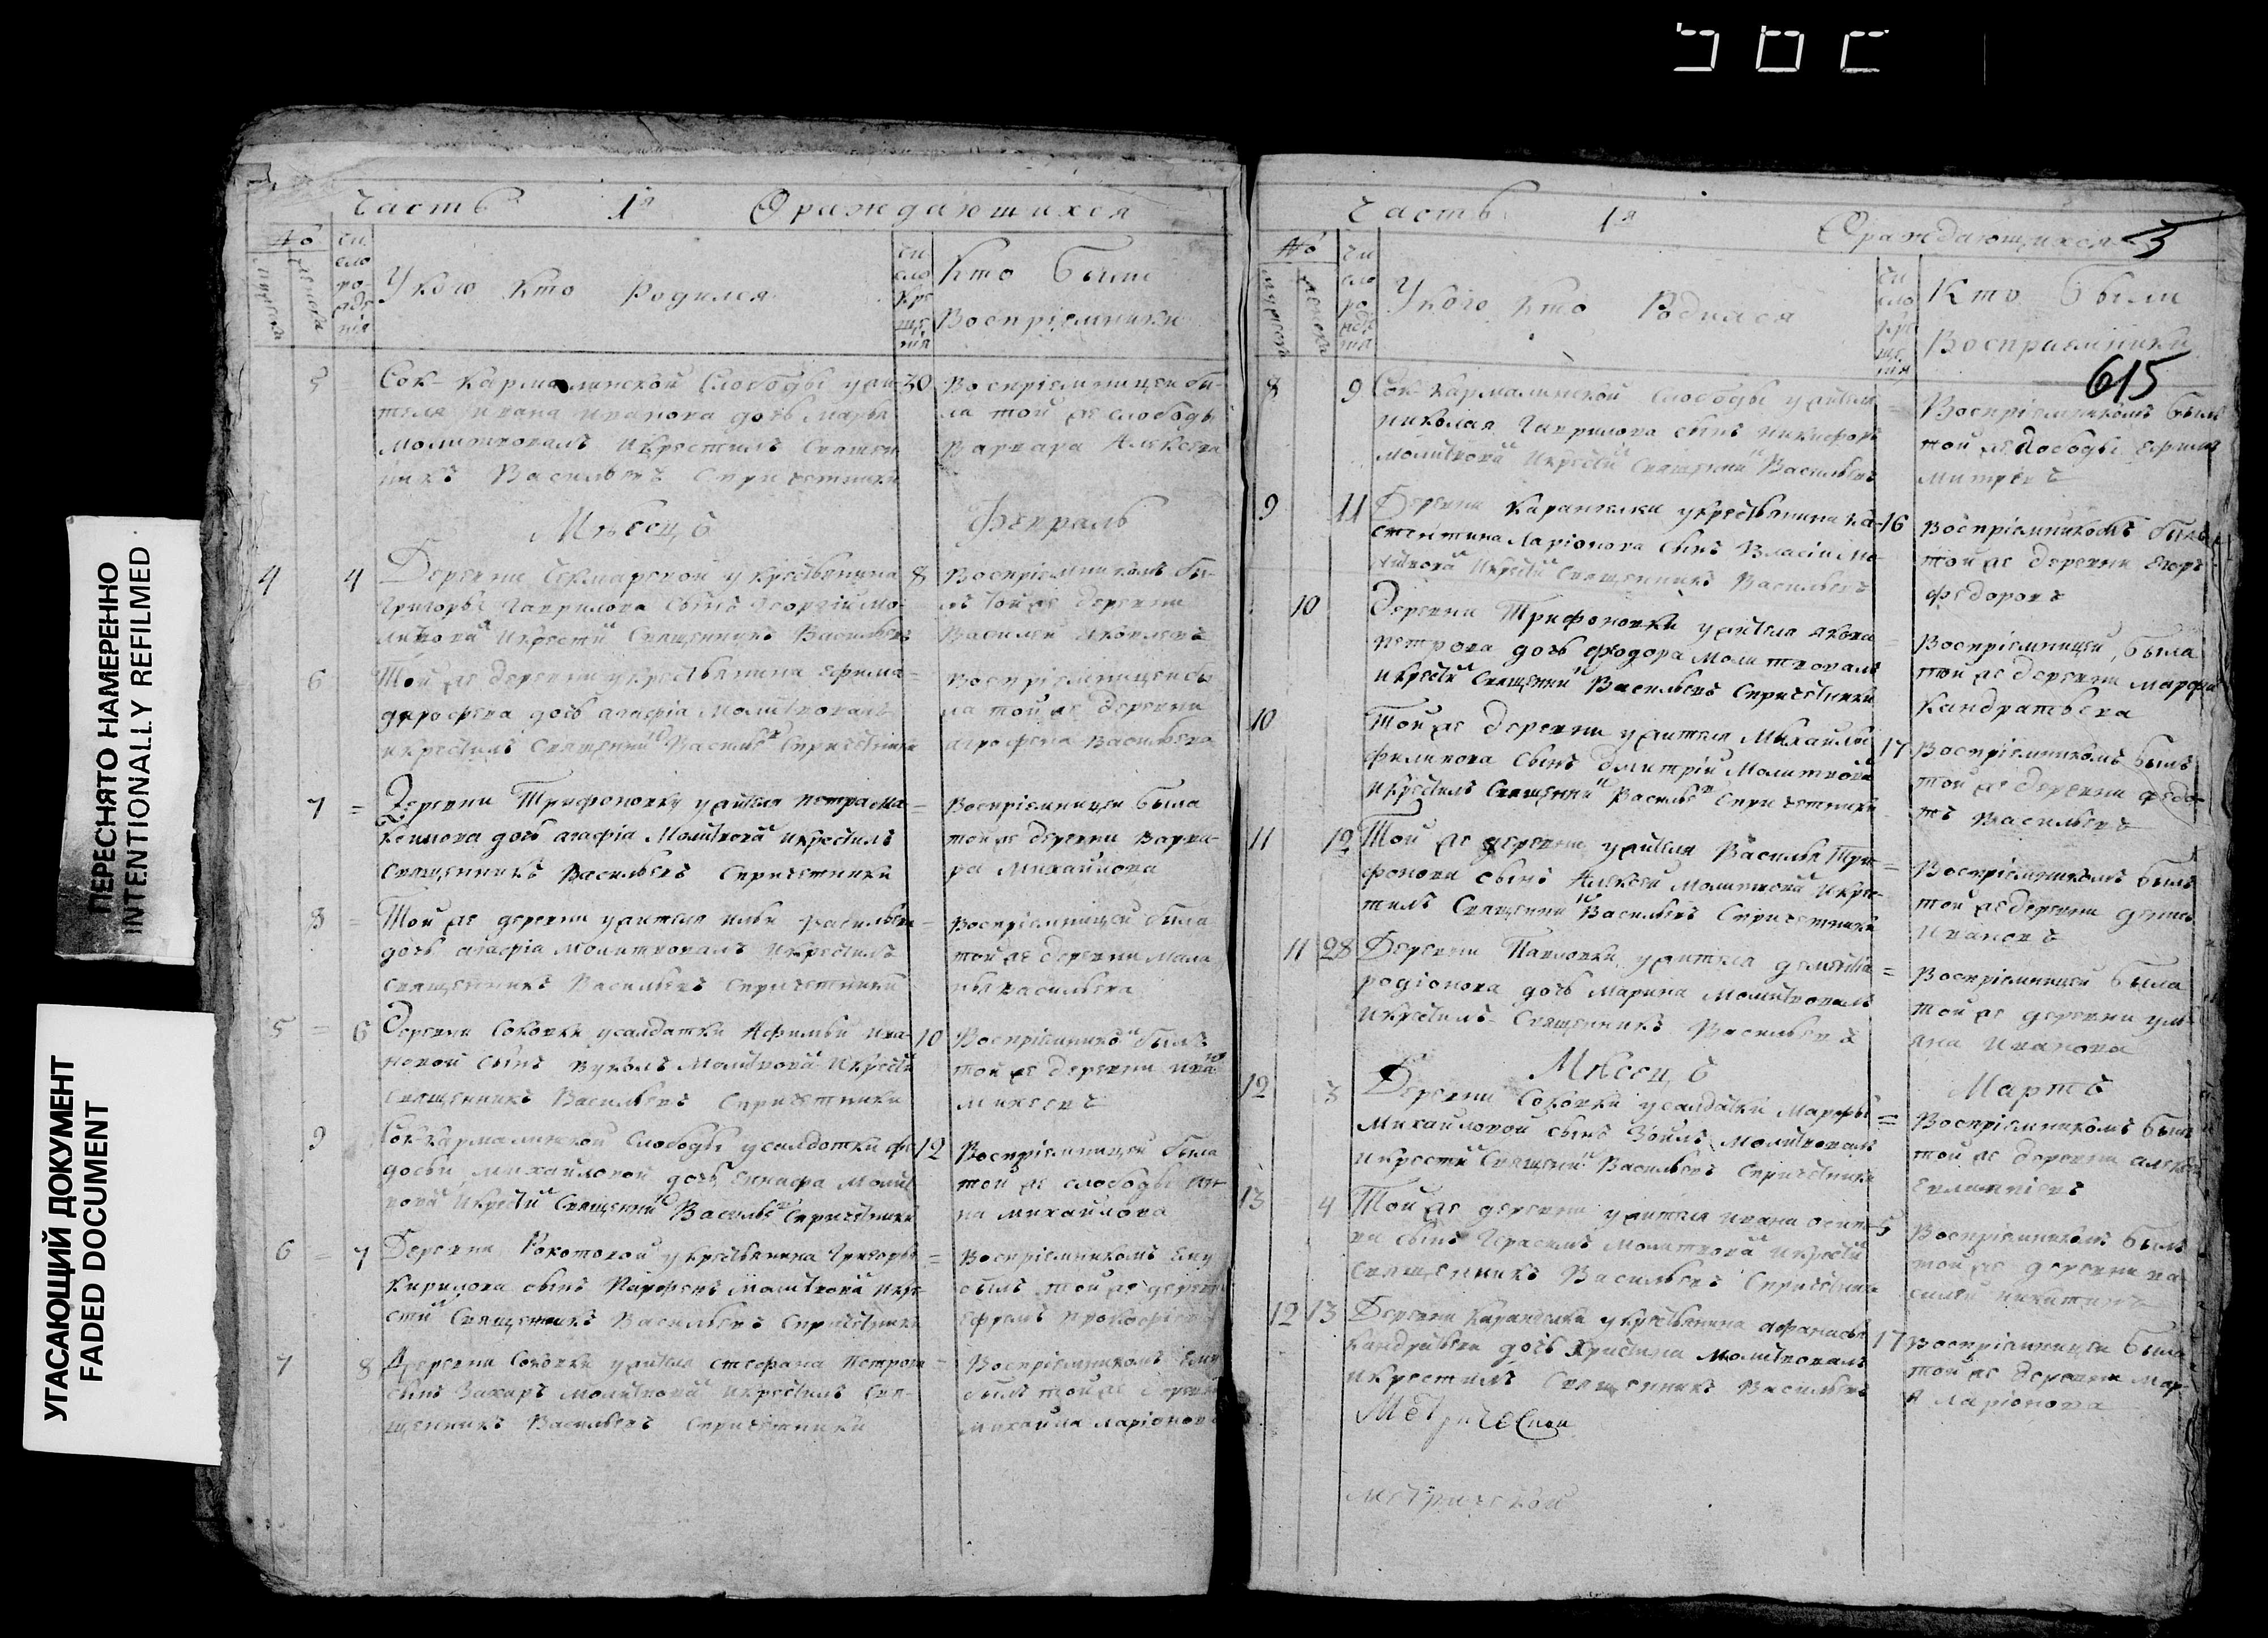 ПЕРЕСНЯТО НАМЕРЕННО
INTENTIONALLY REFILMED
УГАСАЮЩИЙ ДОКУМЕНТ
FADED DOCUMENT
Часть 1я Ораждающихся
№
чи
сло
ро-
жде
нія
У кого кто Родился
чи
сло
кре
ще
нія
Кто были
Воспріемники
Сок-Кармалинской Слободы у жи-
теля Ивана Иванова дочь Марья
молитвовалъ икрестилъ Священ
никъ Васильевъ Спричетники
30
Воспріемницей бы-
ла той же слободы
Варвара Алексева
Месецъ Февраль
4 4
Деревни у крестьянина
Григорья Гаврилова сынъ Георгій мо-
литвова икрести Священникъ Васильевъ
8
Воспріемникомъ бы-
лъ той же деревни
Василей Яковлевъ
6
Той же деревни у крестьянина Ефима
дочь агафіа Молитвовалъ
икрестилъ Священни Василье Спричетники
Воспріемницей бы
ла той же деревни
агрофена Васильева
7 =
Деревни Трифоновки у жителя петра
дочь агафіа Молитвова икрестилъ
Священникъ Васильевъ Спричетники
=
Воспріемницей была
той же деревни Варва-
ра Михайлова
8 =
Той же деревни у жителя ильи васильева
дочь агафіа молитвовалъ икрестилъ
священникъ Васильевъ спричетники
=
Воспріемницей была
той же деревни Мала
нья васильева
5 = 6
Деревни Соковки усалдатки Афимьи Ива-
новой сынъ вуколъ Молитвова икрести
священникъ Васильевъ Спричетники
10
Воспріемникъ былъ
той же деревни ива
михеевъ
9
Сок-Кармалинской Слободы усалдатки фе
досьи михайловой дочь Молит
вова икрести Священни Василье Спричетники
12
Воспріемницей была
той же слободы ан-
на михайлова
6 = 7
Деревни у крестьянина Григорья
Кирилова сынъ Парфенъ молитвова икре-
сти Священникъ Васильевъ Спричетники
=
Воспріемникомъ ему
былъ той же дерев
ефремъ
7 8
Деревни Соковки у жителя стефана Петрова
сынъ Захаръ молитвова икрестилъ Свя-
щенникъ Васильевъ Спричетники
=
Воспріемникомъ ему
былъ той же деревн
михайла ларіоновъ
Часть 1я Ораждающихся
3
№
чи
сло
ро
жде
нія
У кого кто Родился
чи
сло
кре
ще
нія
Кто были
Воспріемники
615
8 9
Сок-Кармалинской слободы у жителя
николая Гаврилова сынъ никифоръ
молитвова икрести Священни Васильевъ
Воспріемникомъ былъ
той же слободы ефимъ
митревъ
9 11
Деревни Карангелки у крестьянина Ко-
стентина Ларіонова сынъ Власій мо-
литвова икрести священникъ Васильевъ
16
Воспріемникомъ былъ
той же деревни Егоръ
федоровъ
10
Деревни Трифоновки у жителя якова
петрова дочь феодора молитвовалъ
икрести Священни Васильевъ Спричетники
=
Воспріемницей была
той же деревни марфа
Кандратьева
10
Той же деревни у жителя Михайлы
филипова сынъ димитрій Молитвова
икрестилъ Священни Василье Спричетники
17
Воспріемникомъ былъ
той же деревни федо-
тъ Васильевъ
11 12
Той же деревни у жителя Василья Три-
фонова сынъ Алексей молитвовой икре-
тилъ Священни Васильевъ Спричетники
=
Воспріемникомъ былъ
той же деревни денис
Ивановъ
11 28
Деревни Павловки у жителя
родіонова дочь марина Молитвовалъ
икрестилъ Священникъ Васильевъ
=
Воспріемницей была
той же деревни уль-
яна Иванова
Месецъ Мартъ
12 3
Деревни Соковки усалдатки Марфы
Михайловой сынъ Зоилъ молитвовалъ
икрести Священни Васильевъ Спричетники
=
Воспріемникомъ былъ
той же деревни алекс
13 4
Той же деревни у жителя ивана осипо-
ва сынъ Герасимъ Молитвова икрести
Священникъ Васильевъ Спричетники
5
Воспріемникомъ былъ
той же деревни ва
силей никитинъ
12 13
Деревни Карангелки у крестьянина афанасья
Кандратьева дочь Христина молитвовалъ
икрестилъ Священникъ Васильевъ
17
Воспріемницей была
той же деревни мар-
я ларіонова
Метрической
метрической